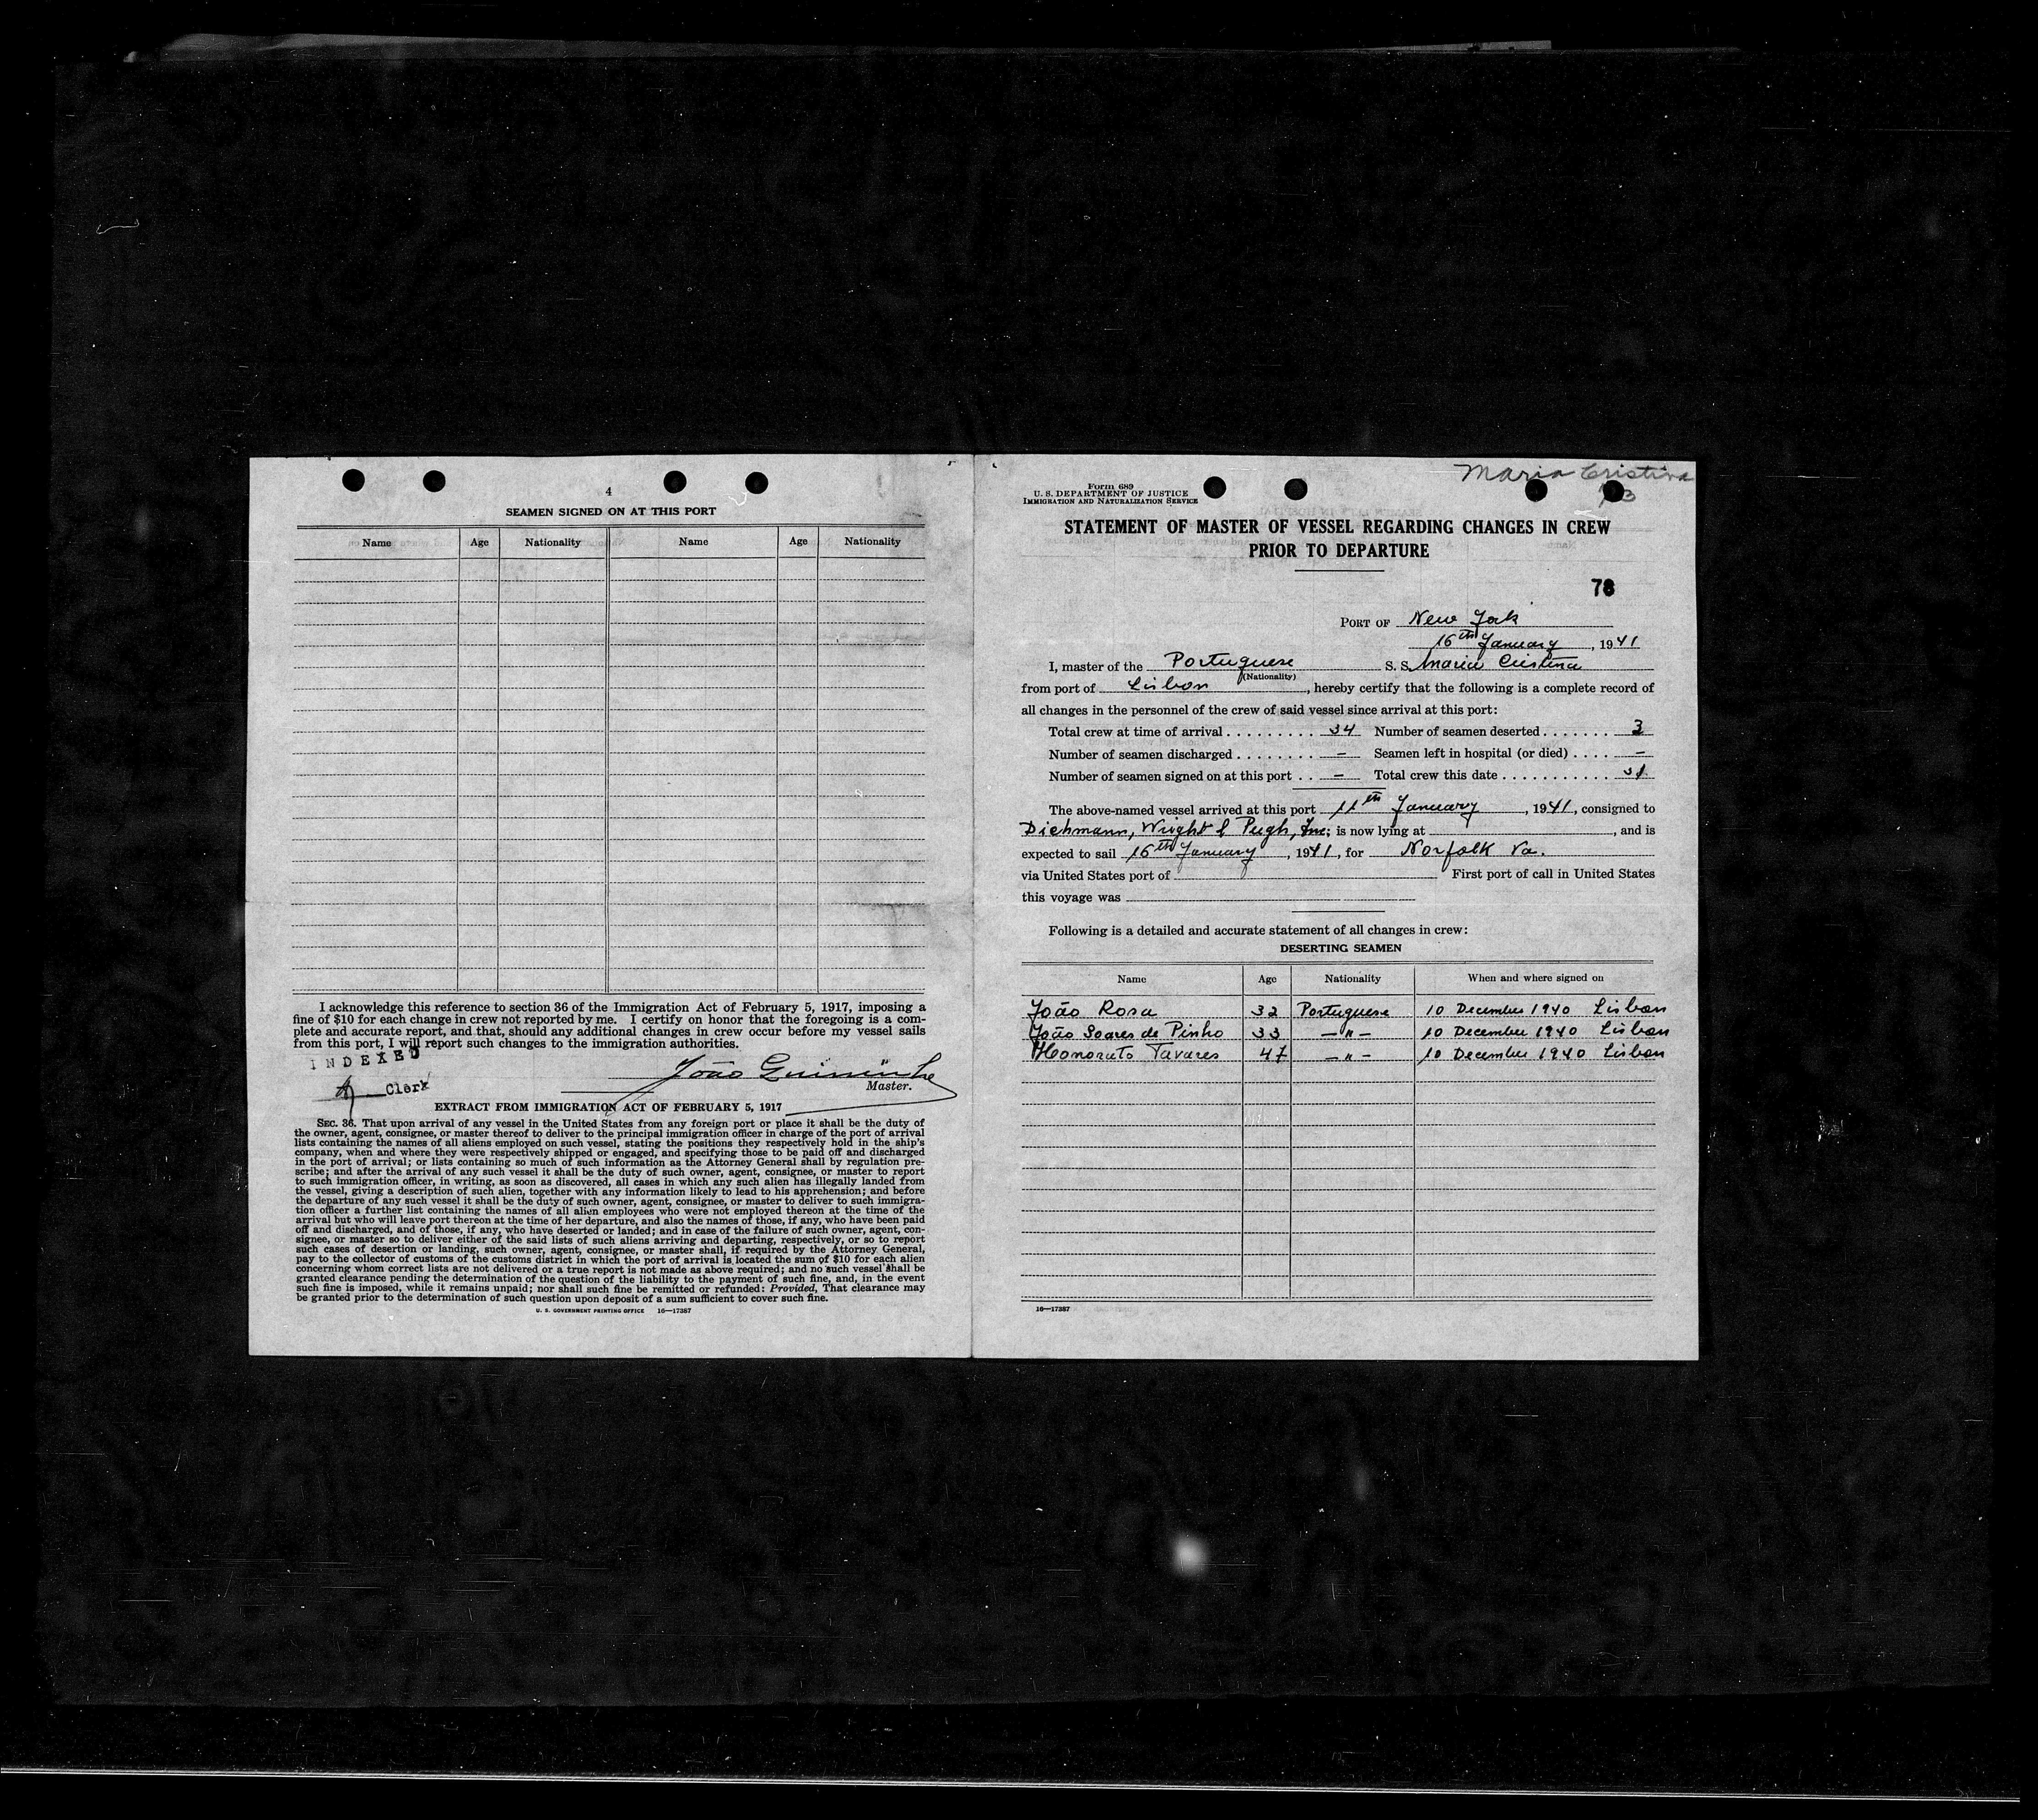 4
SEAMEN SIGNED ON AT THIS PORT
Name Age Nationality Name Age Nationality
I acknowledge this reference to section 36 of the Immigration Act of February 5, 1917, imposing a
fine of $10 for each change in crew not reported by me. I certify on honor that the foregoing is a com-
plete and accurate report, and that, should any additional changes in crew occur before my vessel sails
from this port, I will report such changes to the immigration authorities.
INDEXED
Clerk
João
Master.
EXTRACT FROM IMMIGRATION ACT OF FEBRUARY 5, 1917
SEC. 36. That upon arrival of any vessel in the United States from any foreign port or place it shall be the duty of
the owner, agent, consignee, or master thereof to deliver to the principal immigration officer in charge of the port of arrival
lists containing the names of all aliens employed on such vessel, stating the positions they respectively hold in the ship's
company, when and where they were respectively shipped or engaged, and specifying those to be paid off and discharged
in the port of arrival; or lists containing so much of such information as the Attorney General shall by regulation pre-
scribe; and after the arrival of any such vessel it shall be the duty of such owner, agent, consignee, or master to report
to such immigration officer, in writing, as soon as discovered, all cases in which any such alien has illegally landed from
the vessel, giving a description of such alien, together with any information likely to lead to his apprehension; and before
the departure of any such vessel it shall be the duty of such owner, agent, consignee, or master to deliver to such immigra-
tion officer a further list containing the names of all alien employees who were not employed thereon at the time of the
arrival but who will leave port thereon at the time of her departure, and also the names of those, if any, who have been paid
off and discharged, and of those, if any, who have deserted or landed; and in case of the failure of such owner, agent, con-
signee, or master so to deliver either of the said lists of such aliens arriving and departing, respectively, or so to report
such cases of desertion or landing, such owner, agent, consignee, or master shall, if required by the Attorney General,
pay to the collector of customs of the customs district in which the port of arrival is located the sum of $10 for each alien
concerning whom correct lists are not delivered or a true report is not made as above required; and no such vessel shall be
granted clearance pending the determination of the question of the liability to the payment of such fine, and, in the event
such fine is imposed, while it remains unpaid; nor shall such fine be remitted or refunded: Provided, That clearance may
be granted prior to the determination of such question upon deposit of a sum sufficient to cover such fine.
U. S. GOVERNMENT PRINTING OFFICE 16—17387
Maria Cristina
Form 689
U. S. DEPARTMENT OF JUSTICE
IMMIGRATION AND NATURALIZATION SERVICE
STATEMENT OF MASTER OF VESSEL REGARDING CHANGES IN CREW
PRIOR TO DEPARTURE
78
PORT OF New York
16th January, 1941
I, master of the Portuguese S. S. Maria Cristina
(Nationality)
from port of Lisbon, hereby certify that the following is a complete record of
all changes in the personnel of the crew of said vessel since arrival at this port:
Total crew at time of arrival ......... 34 Number of seamen deserted ....... 3
Number of seamen discharged ........ — Seamen left in hospital (or died) .... —
Number of seamen signed on at this port .. — Total crew this date ........... 31
The above-named vessel arrived at this port 11th January, 1941, consigned to
Dichmann, Wright & Pugh, Inc; is now lying at , and is
expected to sail 16th January, 1941, for Norfolk Va.
via United States port of First port of call in United States
this voyage was
Following is a detailed and accurate statement of all changes in crew:
DESERTING SEAMEN
Name Age Nationality When and where signed on
João Rosa 32 Portuguese 10 December 1940 Lisbon
João Soares de Pinho 33 —"— 10 December 1940 Lisbon
Honorato Tavares 47 —"— 10 December 1940 Lisbon
16—17387